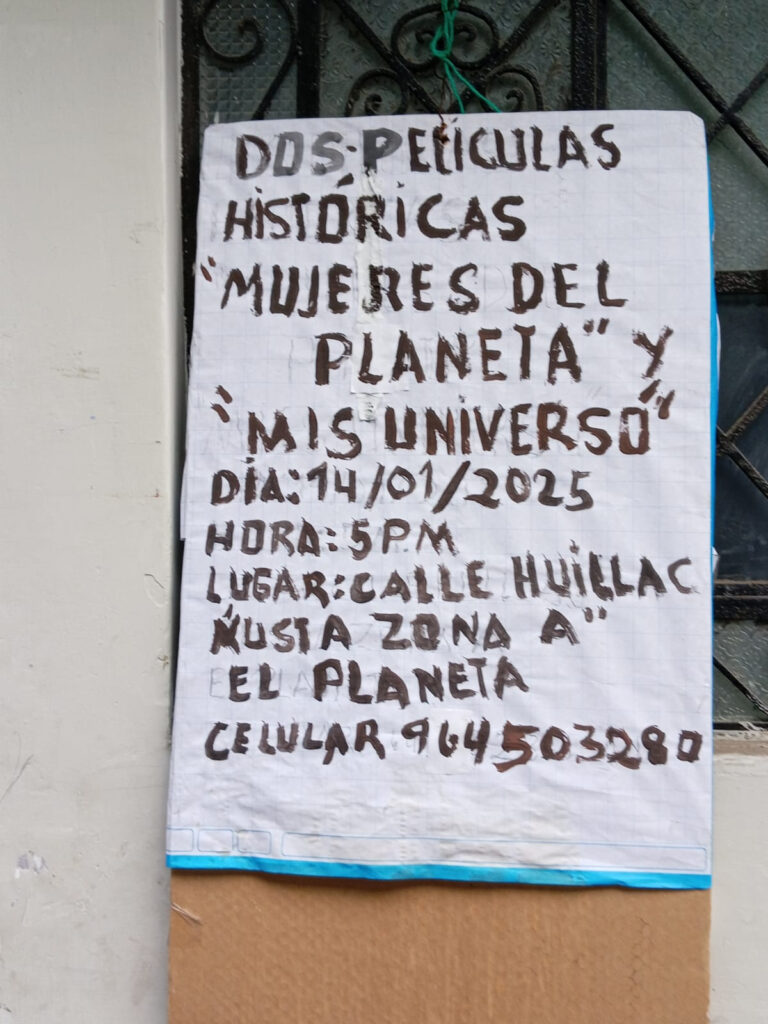 DOS-PELICULAS
HISTÓRICAS
"MUJERES DEL
PLANETA" Y
"MIS UNIVERSO"
DÍA: 14/01/2025
HORA: 5PM
LUGAR: CALLE HUILLAC
ÑUSTA ZONA A"
EL PLANETA
CELULAR 964503280